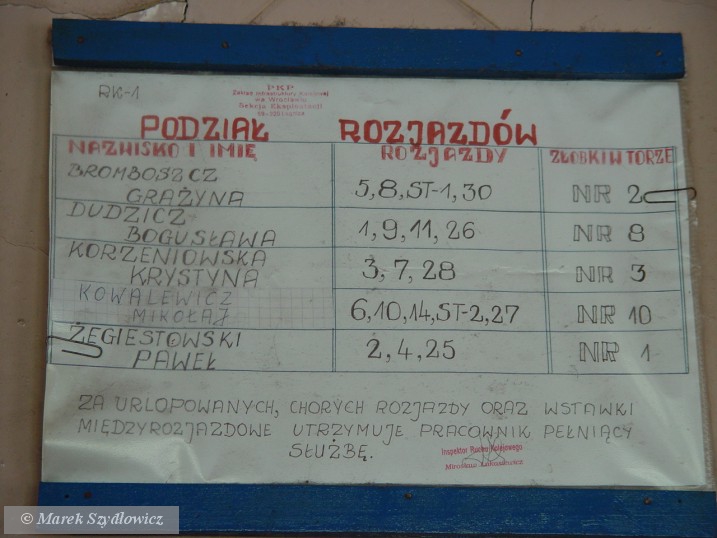 RK-1
PKP
Sekcja Eksploatacji
PODZIAŁ ROZJAZDÓW
NAZWISKO I IMIĘ ROZJAZDY ŻŁOBKI W TORZE
BROMBOSZCZ
GRAŻYNA 5,8,ST-1,30 NR 2
DUDZICZ
BOGUSŁAWA 1,9,11,26 NR 8
KORZENIOWSKA
KRYSTYNA 3,7,28 NR 3
KOWALEWICZ
MIKOŁAJ 6,10,14,ST-2,27 NR 10
ŻEGIESTOWSKI
PAWEŁ 2,4,25 NR 1
ZA URLOPOWANYCH, CHORYCH ROZJAZDY ORAZ WSTAWKI
MIĘDZYROZJAZDOWE UTRZYMUJE PRACOWNIK PEŁNIĄCY
SŁUŻBĘ.
Inspektor Ruchu Kolejowego
Mirosław
© Marek Szydłowicz